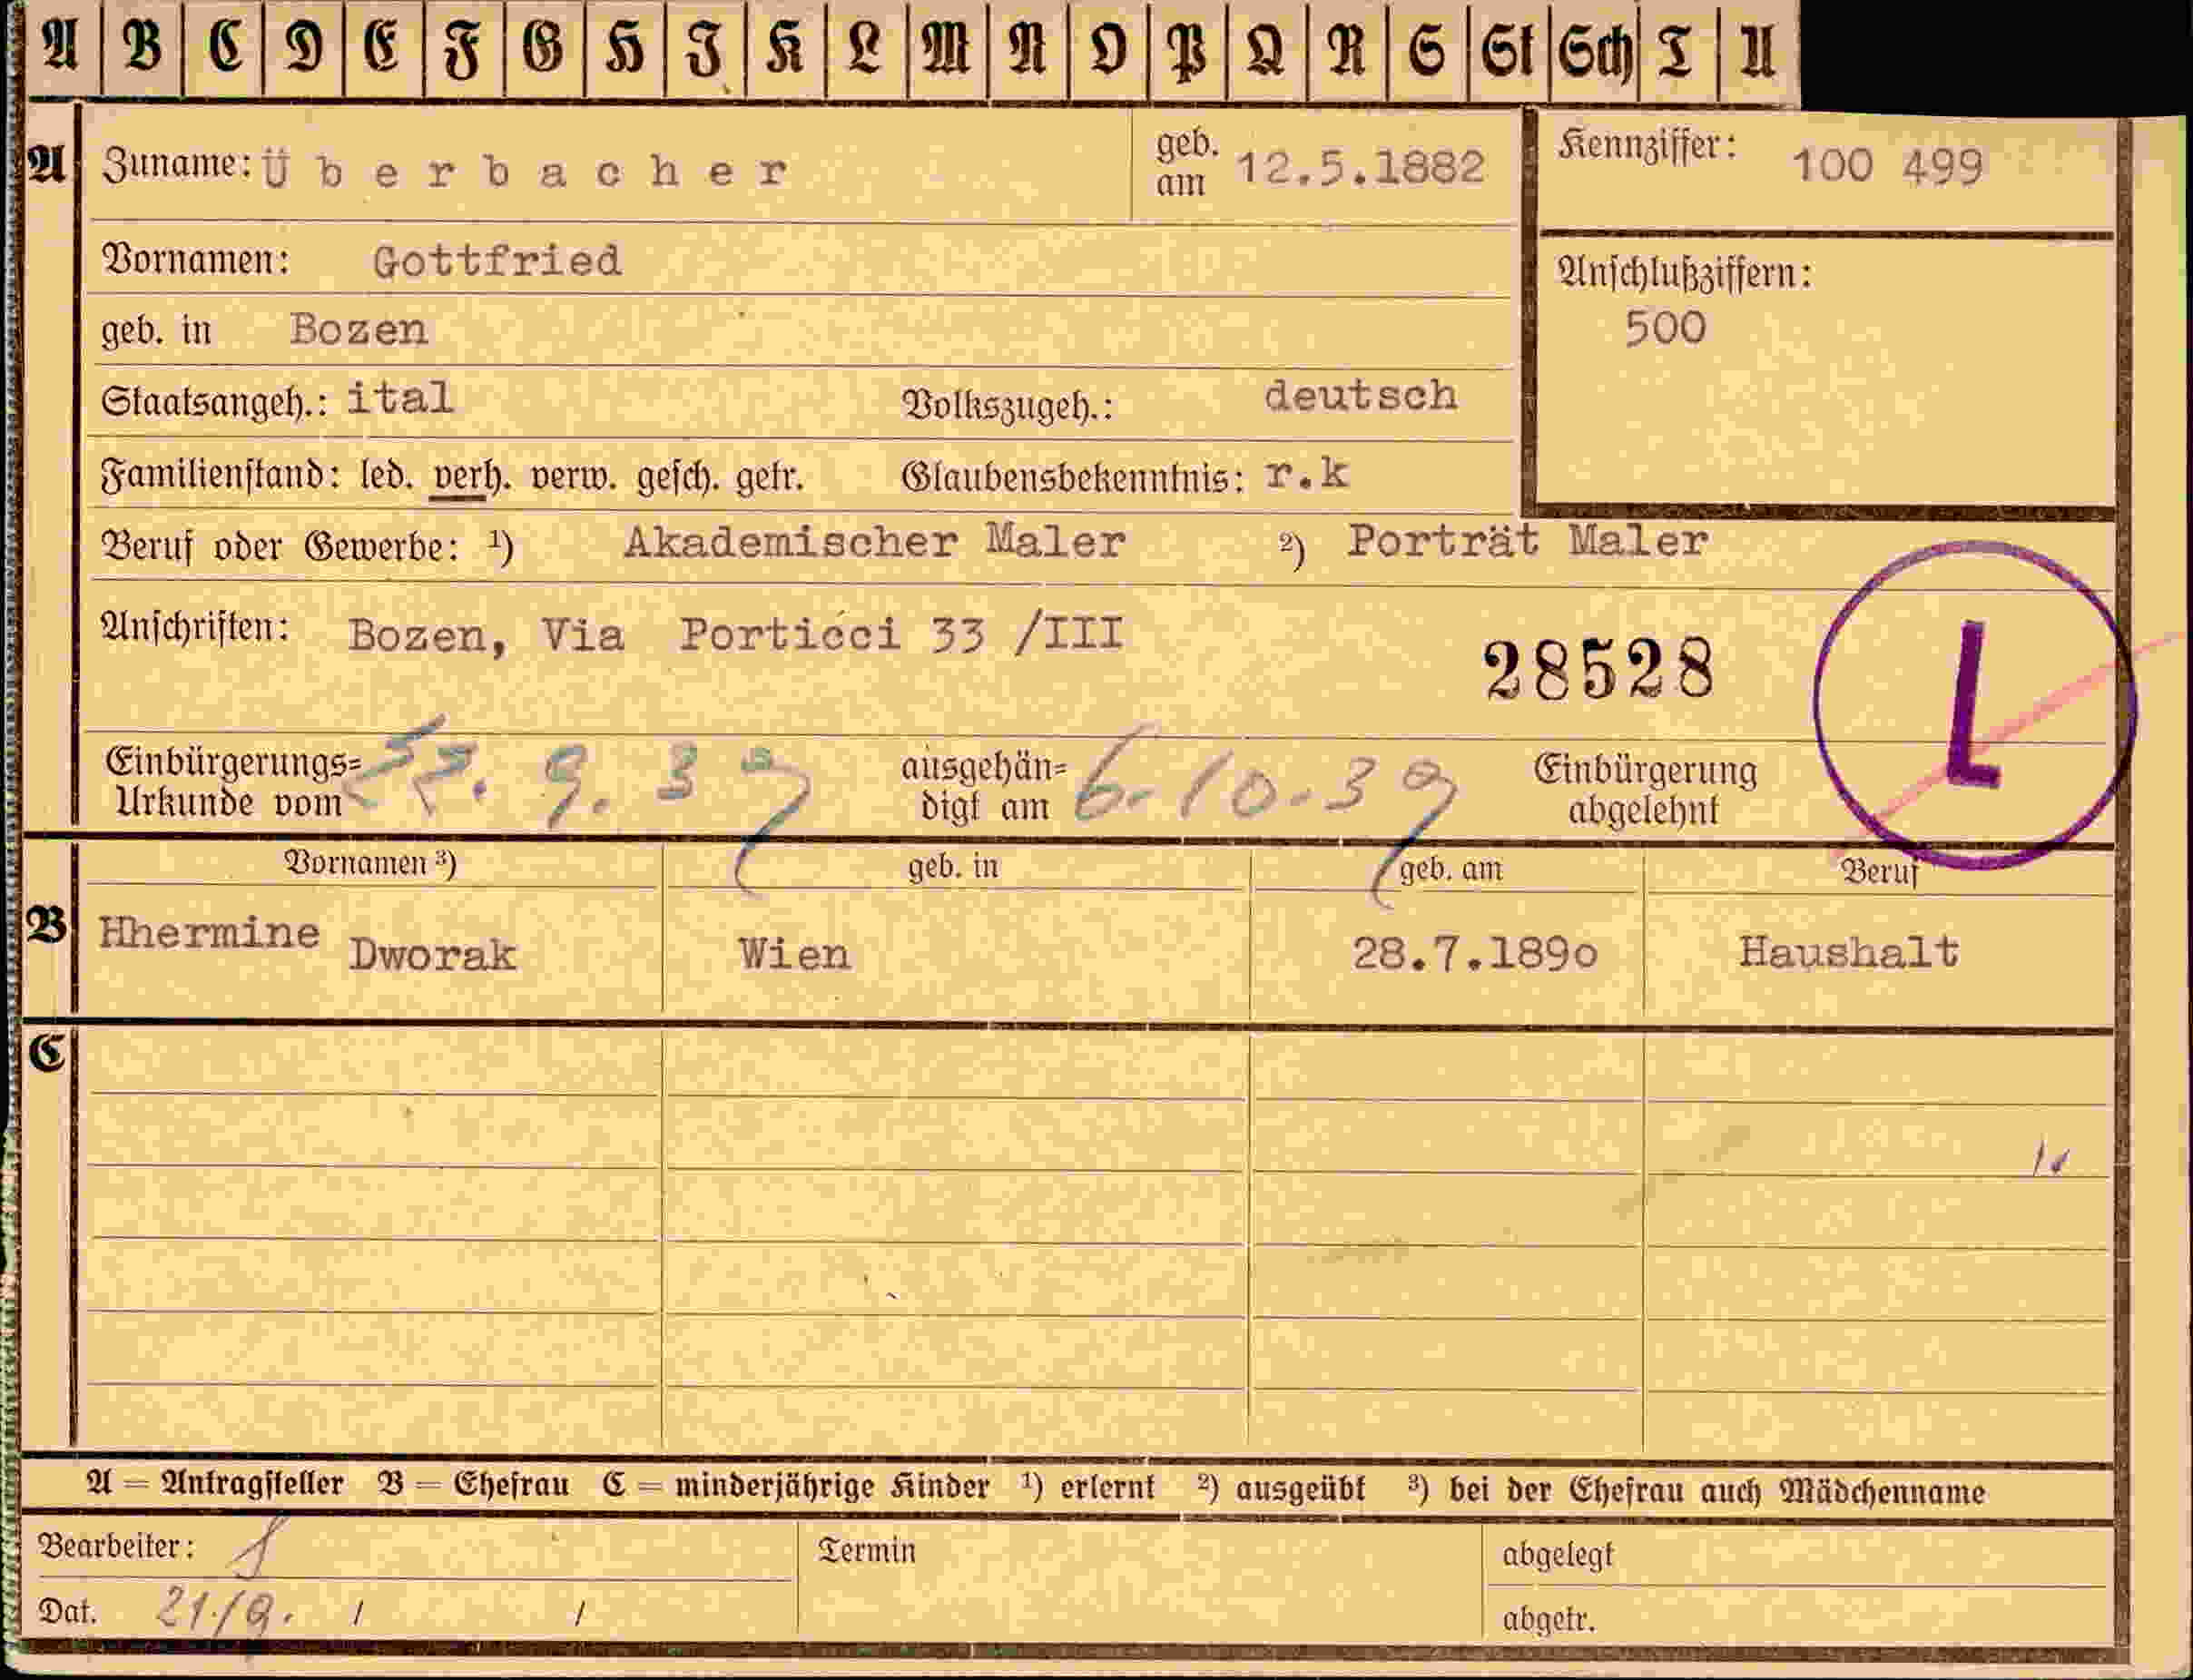 A B C D E F G H J K L M N O P Q R S St Sch T U
A Zuname: Ü b e r b a c h e r geb. am 12.5.1882 Kennziffer: 100 499
Vornamen: Gottfried
Anschlußziffern:
geb. in Bozen 500
Staatsangeh.: ital Volkszugeh.: deutsch
Familienstand: led. verh. verw. gesch. getr. Glaubensbekenntnis: r.k
Beruf oder Gewerbe: ¹) Akademischer Maler ²) Porträt Maler
Anschriften: Bozen, Via Porticci 33 /III
28528
L
Einbürgerungs= ausgehän= Einbürgerung
Urkunde vom 9. 39 digt am 6.10.39 abgelehnt
Vornamen ³) geb. in geb. am Beruf
B Hhermine Dworak Wien 28.7.189o Haushalt
C
A = Antragsteller B = Ehefrau C = minderjährige Kinder ¹) erlernt ²) ausgeübt ³) bei der Ehefrau auch Mädchenname
Bearbeiter: Termin abgelegt
Dat. 21./9. / / abgetr.